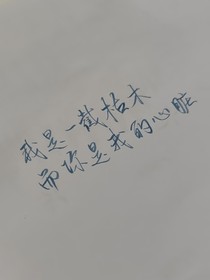 我是一截枯木
而你是我的心脏